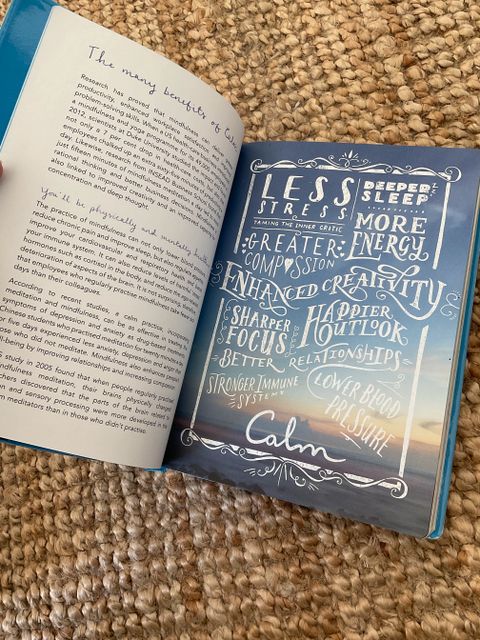 The many benefits of Calm
Research has proved that mindfulness can
productivity, enhanced workplace
problem-solving skills. When a US health
a mindfulness and yoga programme for its
2012, scientists at Duke University studied the
not only a 7 per cent drop in health care costs
employees chalked up an extra sixty-five minutes of
day. Likewise, research from INSEAD Business School
just fifteen minutes of mindfulness meditation a day led
rational thinking and better business decisions. Meditation
also linked to improved creativity and an improved capacity
concentration and deep thought.
You'll be physically and mentally
The practice of mindfulness can not only lower blood pressure,
reduce chronic pain and improve sleep, but also
improve your cardiovascular and respiratory health and
your immune system. It can also reduce levels of harmful
hormones such as cortisol in the body, and reduce age-related
deterioration of aspects of the brain. It is not surprising, therefore,
that employees who regularly practise mindfulness take fewer
days than their colleagues.
According to recent studies, a calm practice, incorporating
meditation and mindfulness, can be as effective in treating
symptoms of depression and anxiety as drug-based treatment.
Chinese students who practised meditation for twenty minutes
or five days experienced less anxiety, depression and anger than
ose who did not meditate. Mindfulness also enhances people's
ell-being by improving relationships and increasing compassion.
S study in 2005 found that when people regularly practise
ndfulness meditation, their brains physically changed.
rchers discovered that the parts of the brain related to
n and sensory processing were more developed in the
m meditators than in those who didn't practise.
LESS
STRESS
DEEPER
SLEEP
TAMING THE INNER CRITIC
MORE
ENERGY
GREATER
COMPASSION
ENHANCED CREATIVITY
SHARPER
FOCUS
HAPPIER
OUTLOOK
BETTER RELATIONSHIPS
STRONGER IMMUNE
SYSTEM
LOWER BLOOD
PRESSURE
Calm